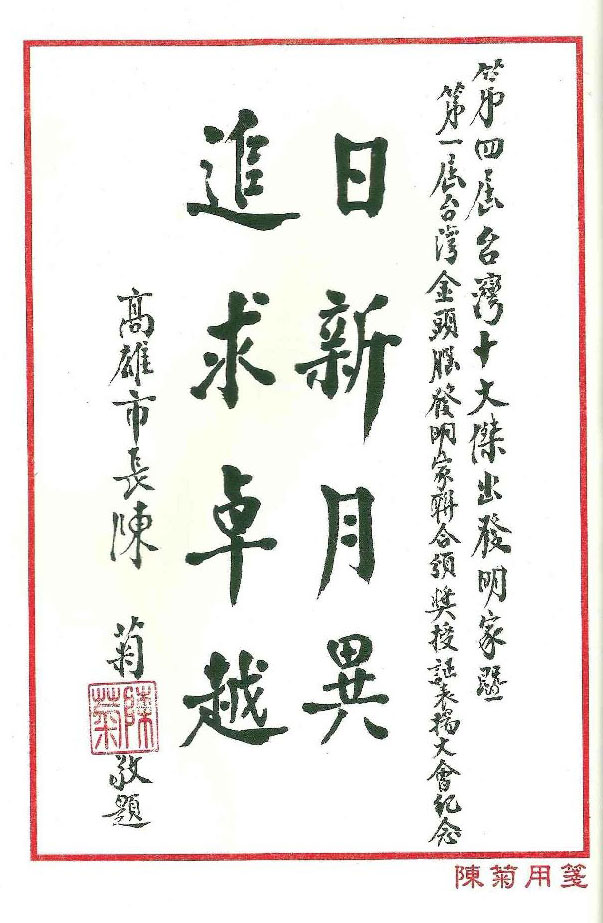 第四屆台灣十大傑出發明家暨
第一屆台灣金頭腦發明家聯合頒獎授証表揚大會紀念
日新月異
追求卓越
高雄市長陳 菊 敬題
陳菊
陳菊用箋